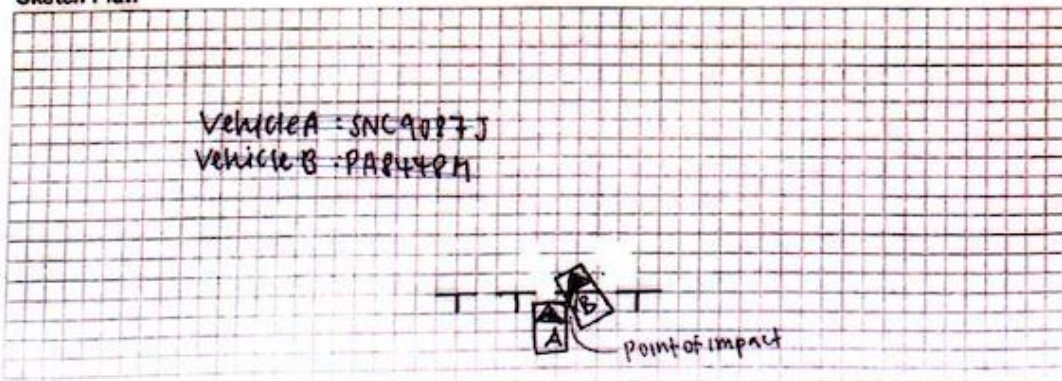 Sketch Plan
Vehicle A : SNC9087J
Vehicle B : PA8448M
B
A
Point of impact